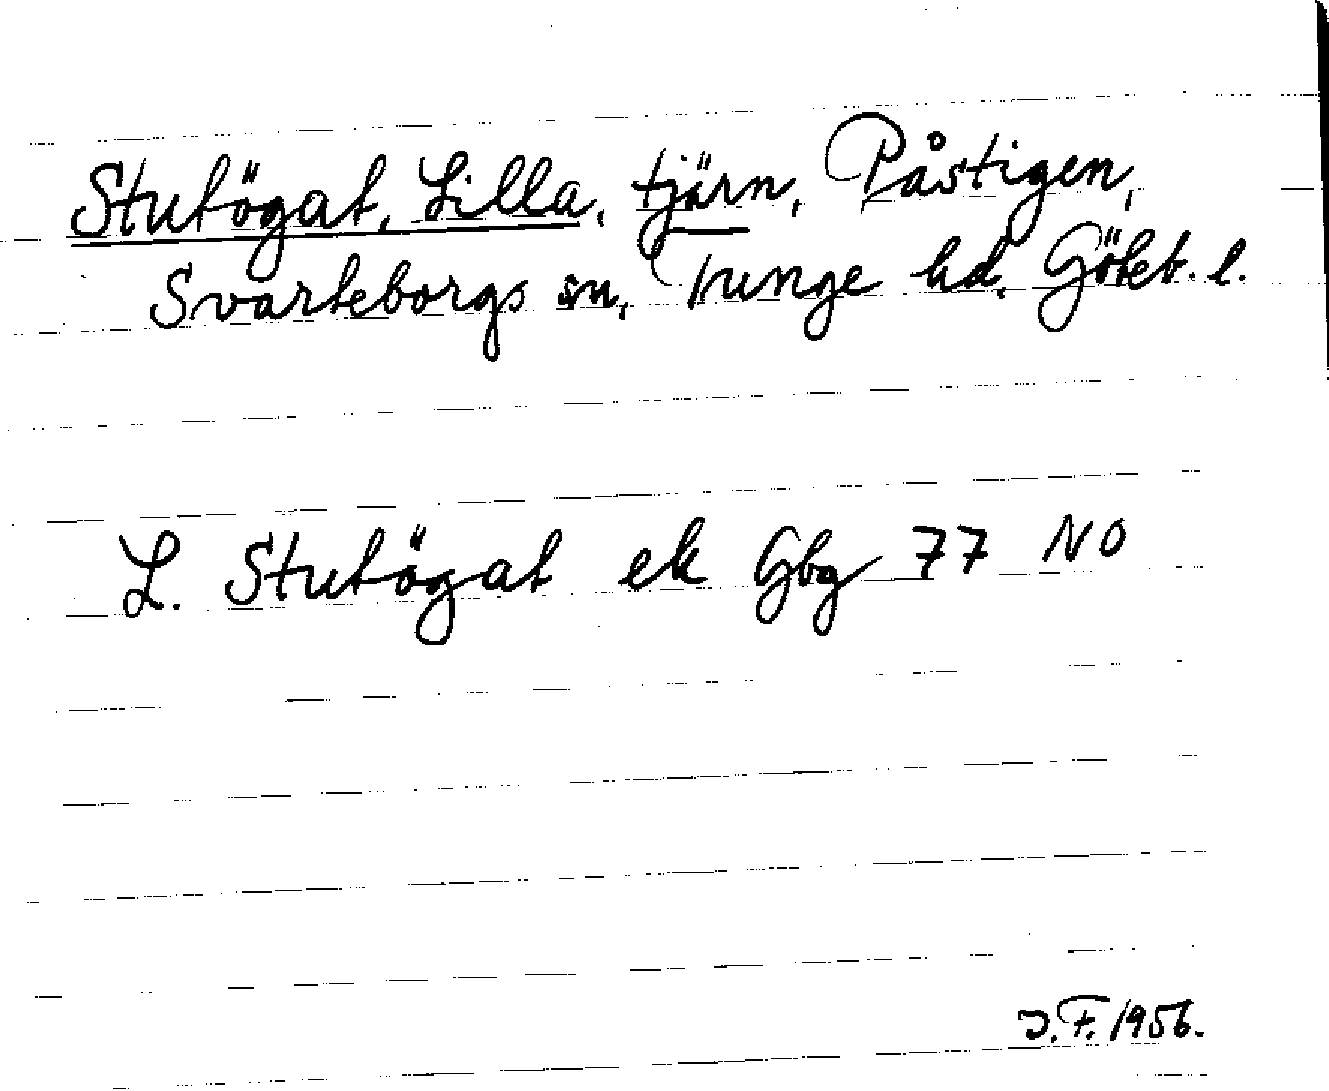 Stutögat, Lilla, tjärn, Påstigen,
Svarteborgs sn, Tunge hd. Göteb. l.
L. Stutögat ek Gbg 77 NO
J.F. 1956.